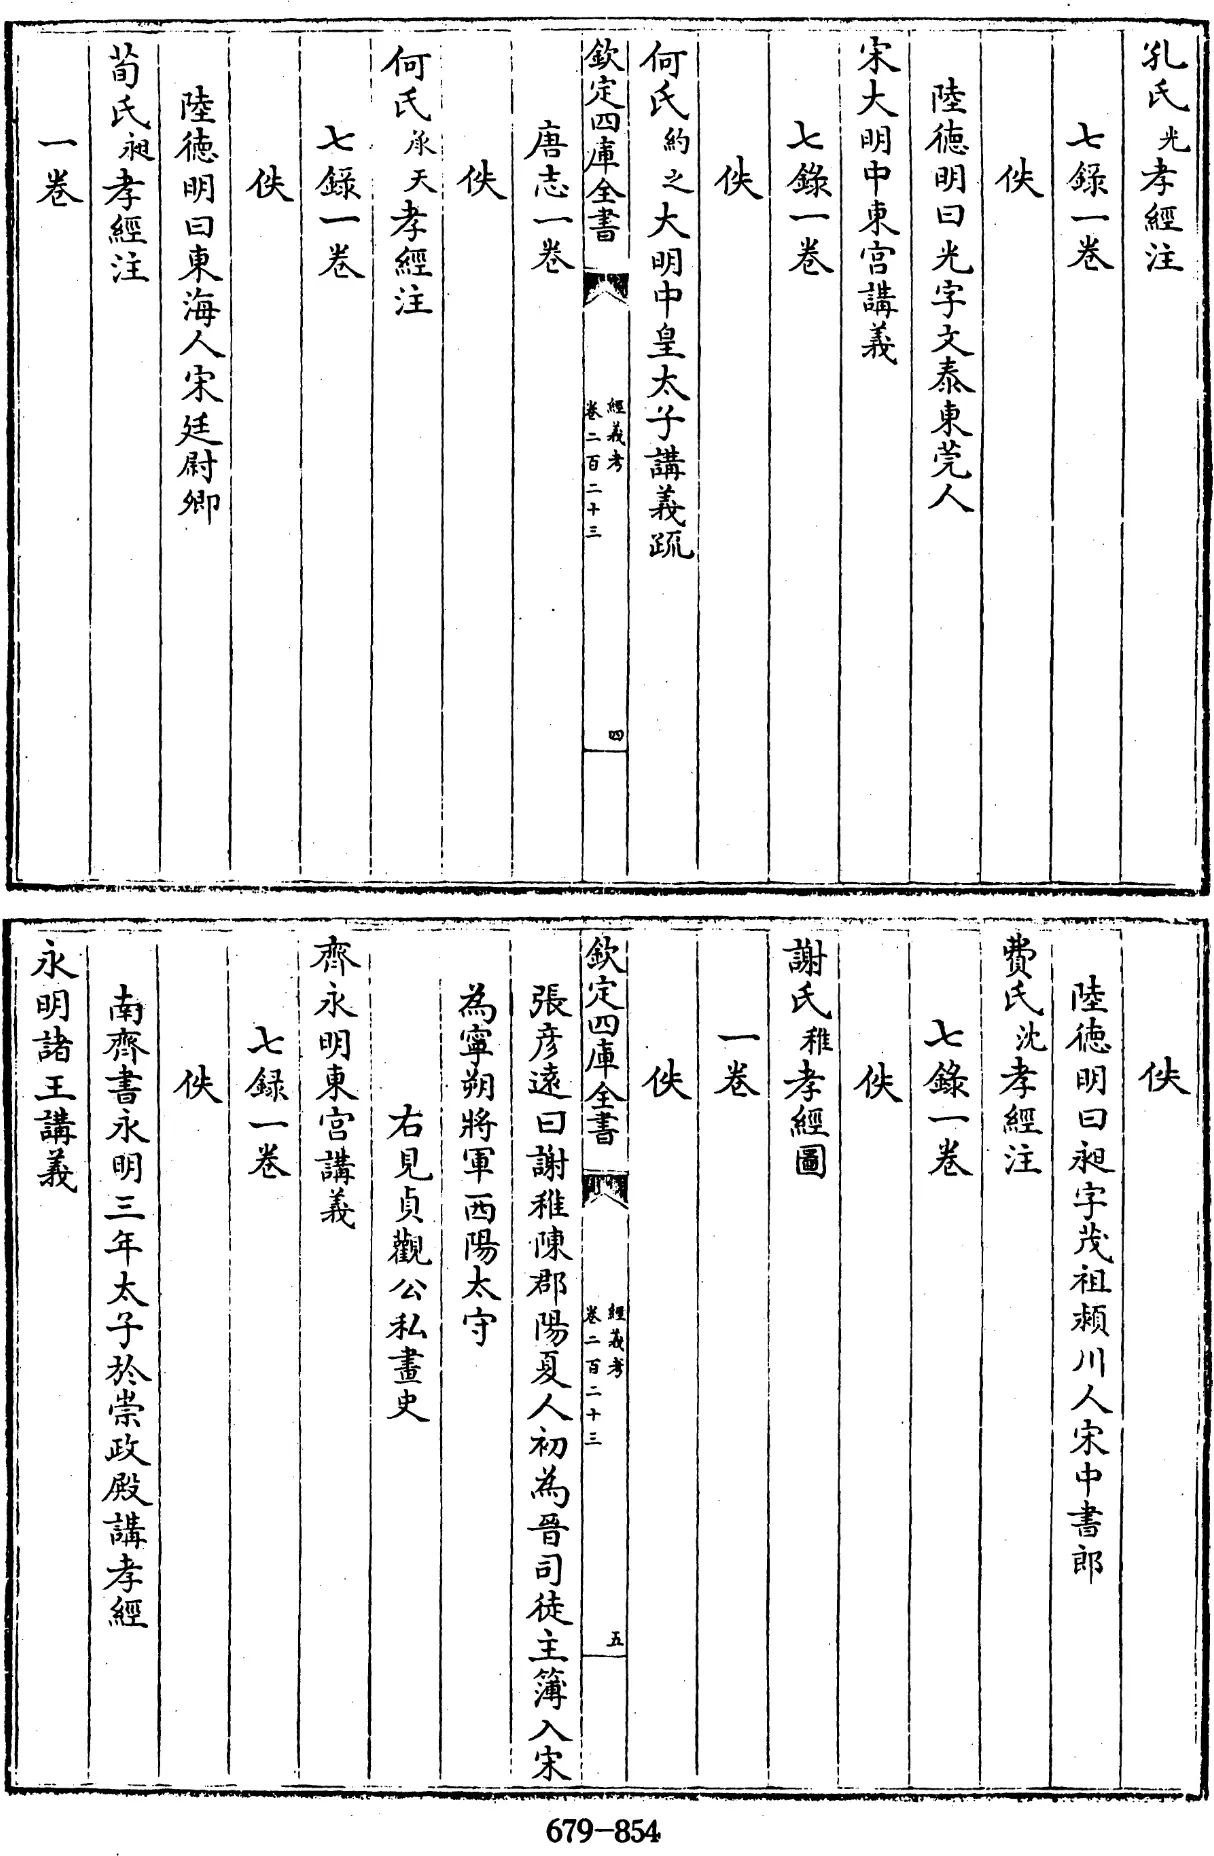 孔氏光孝經注
七錄一卷
佚
陸德明曰光字文泰東莞人
宋大明中東宮講義
七錄一卷
佚
何氏約之大明中皇太子講義疏
欽定四庫全書
經義考
卷二百二十三
四
唐志一卷
佚
何氏承天孝經注
七錄一卷
佚
陸德明曰東海人宋廷尉卿
荀氏昶孝經注
一卷
佚
陸德明曰昶字茂祖潁川人宋中書郎
費氏沈孝經注
七錄一卷
佚
謝氏稚孝經圖
一卷
佚
欽定四庫全書
經義考
卷二百二十三
五
張彦遠曰謝稚陳郡陽夏人初為晉司徒主簿入宋
為寧朔將軍西陽太守
右見貞觀公私畫史
齊永明東宮講義
七録一卷
佚
南齊書永明三年太子於崇政殿講孝經
永明諸王講義
679-854